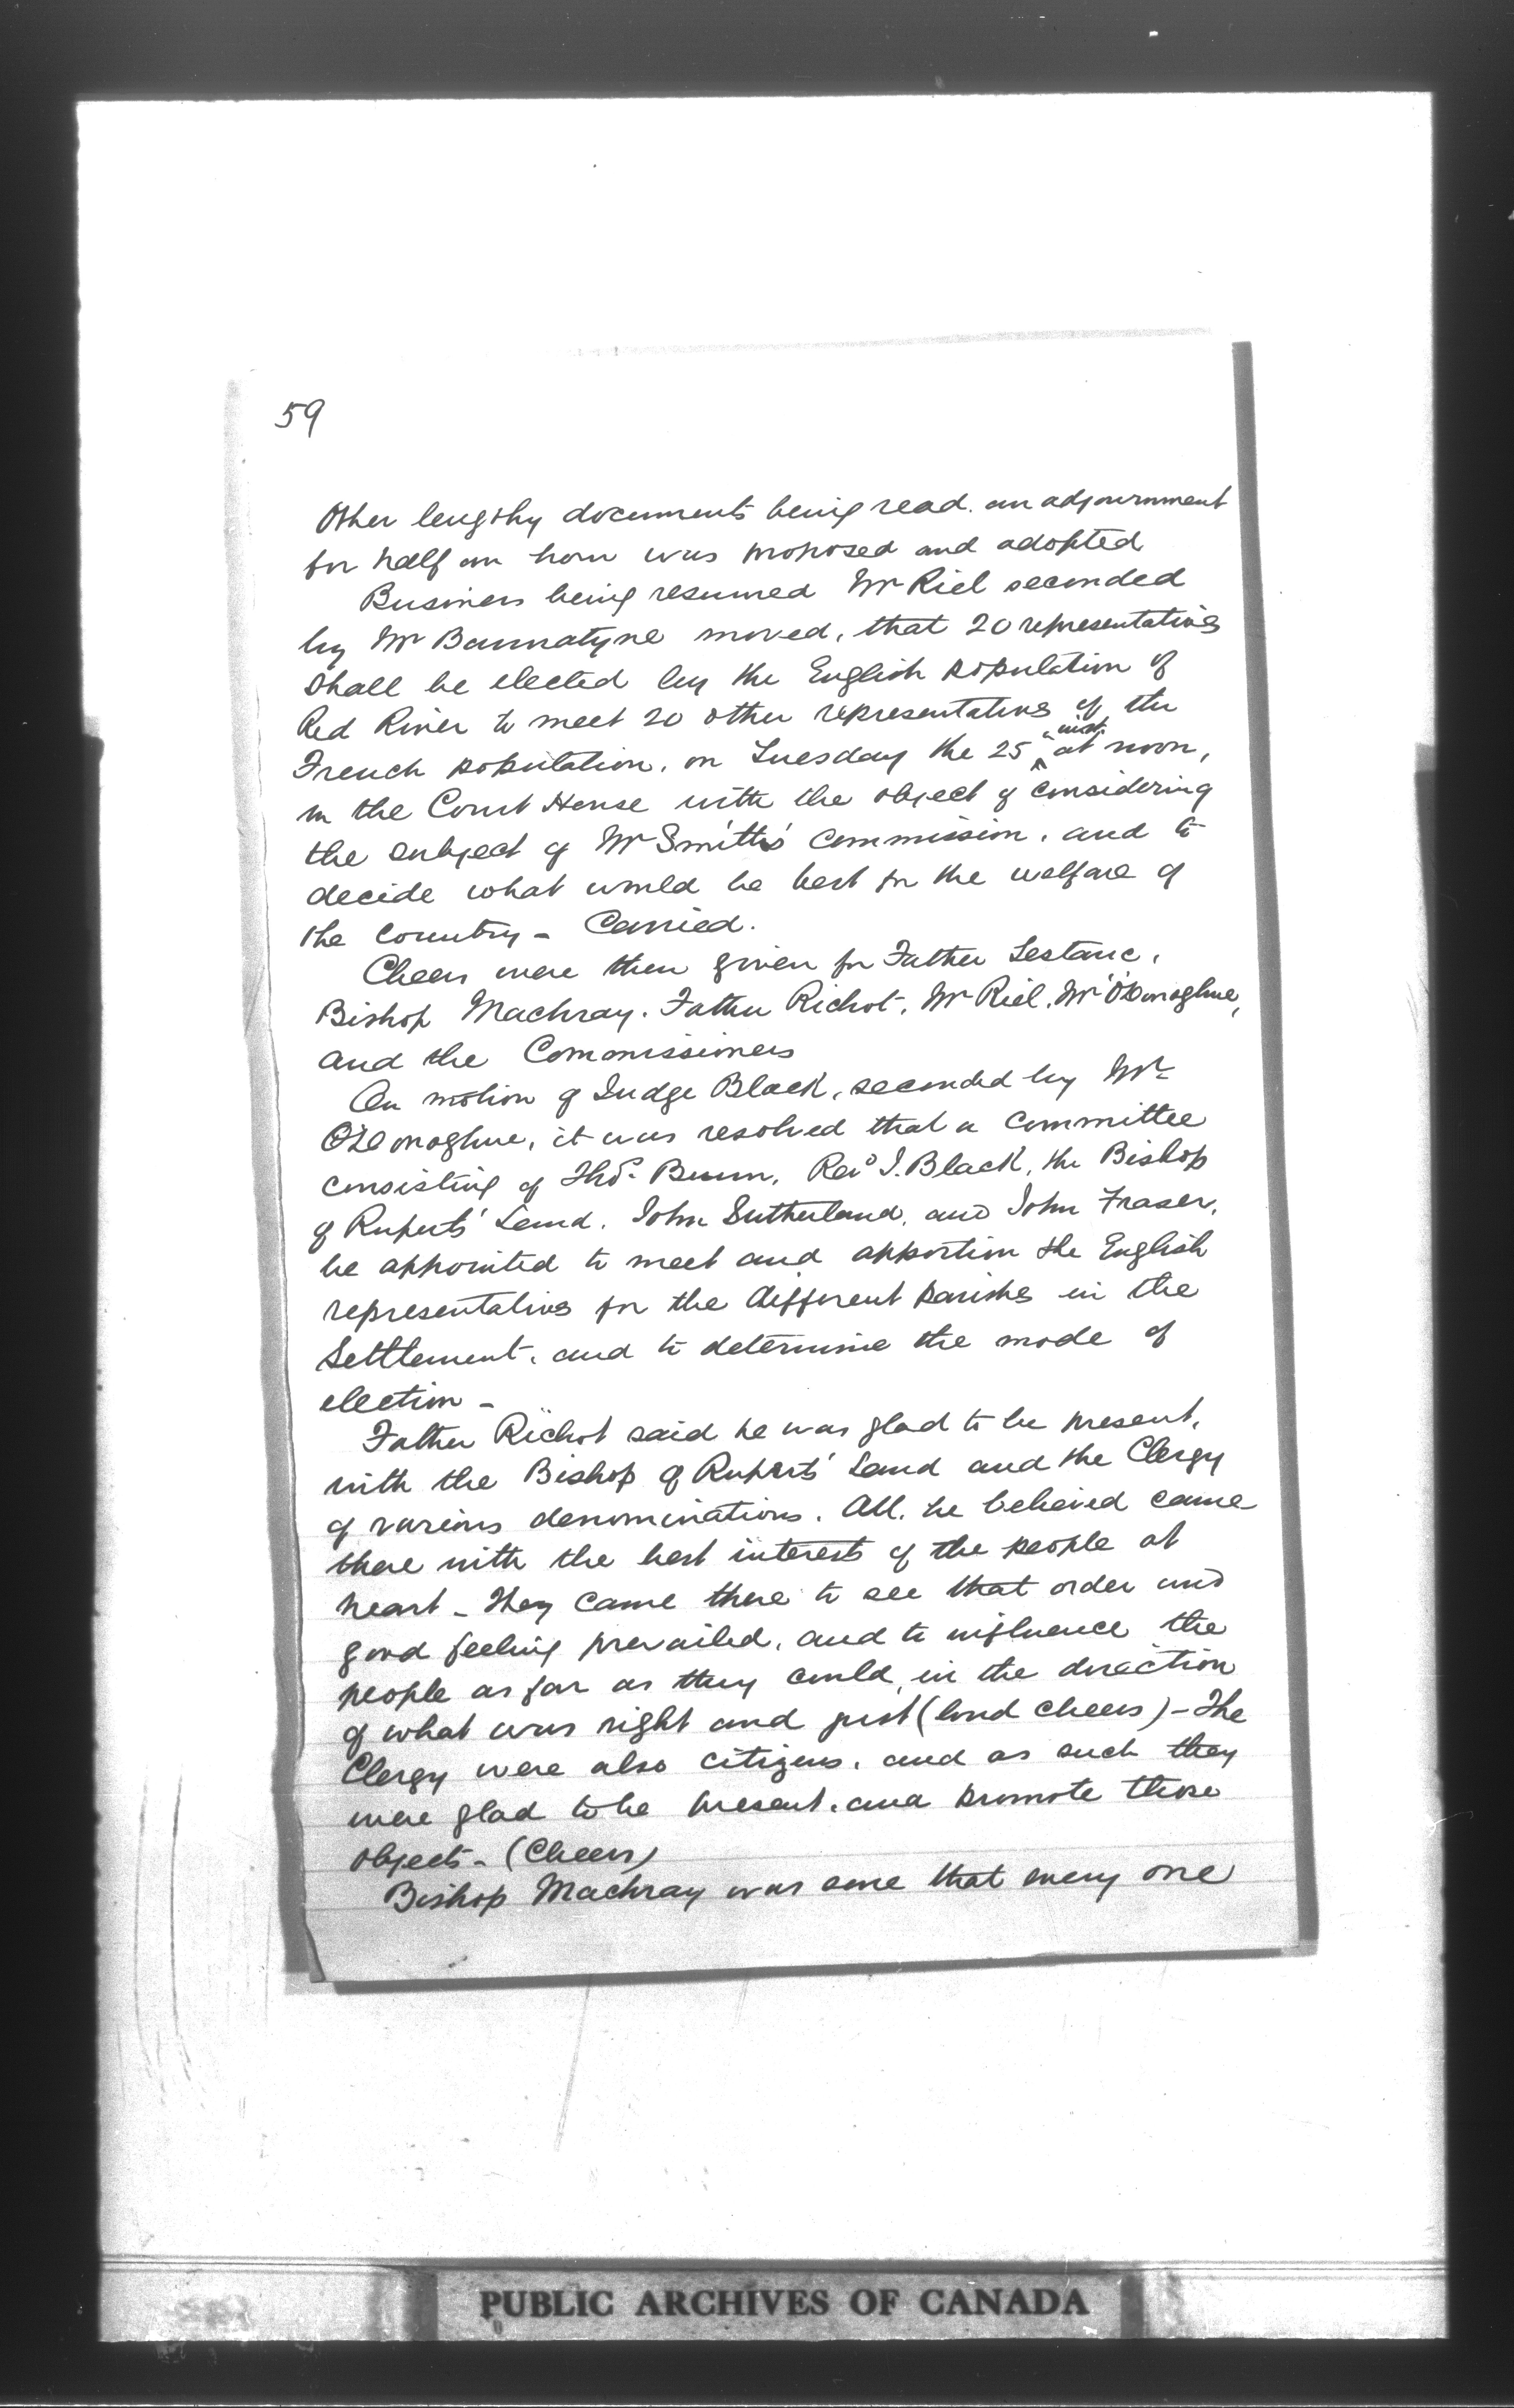 59
Other lengthy documents being read. an adjournment
for half an hour was proposed and adopted
Business being resumed Mr Riel seconded
by Mr Bannatyne moved, that 20 representatives
shall be elected by the English population of
Red River to meet 20 other representatives of the
French population, on Tuesday the 25 inst. at noon,
in the Court House with the object of considering
the subject of Mr Smith's Commission, and to
decide what would be best for the welfare of
the country - Carried.
Cheers were then given for Father Lestanc,
Bishop Machray. Father Richot, Mr Riel, Mr O'Donoghue,
and the Commissioners
On motion of Judge Black, seconded by Mr
O'Donoghue, it was resolved that a Committee
consisting of Thos. Bunn, Revd J. Black, the Bishop
of Ruperts' Land. John Sutherland, and John Fraser,
be appointed to meet and apportion the English
representatives for the different parishes in the
Settlement, and to determine the mode of
election -
Father Richot said he was glad to be present,
with the Bishop of Ruperts' Land and the Clergy
of various denominations. All, he believed came
there with the best interests of the people at
heart - They came there to see that order and
good feeling prevailed, and to influence the
people as far as they could, in the direction
of what was right and just (loud cheers) - The
Clergy were also citizens, and as such they
were glad to be present, and promote those
objects - (Cheers)
Bishop Machray was sure that every one
PUBLIC ARCHIVES OF CANADA